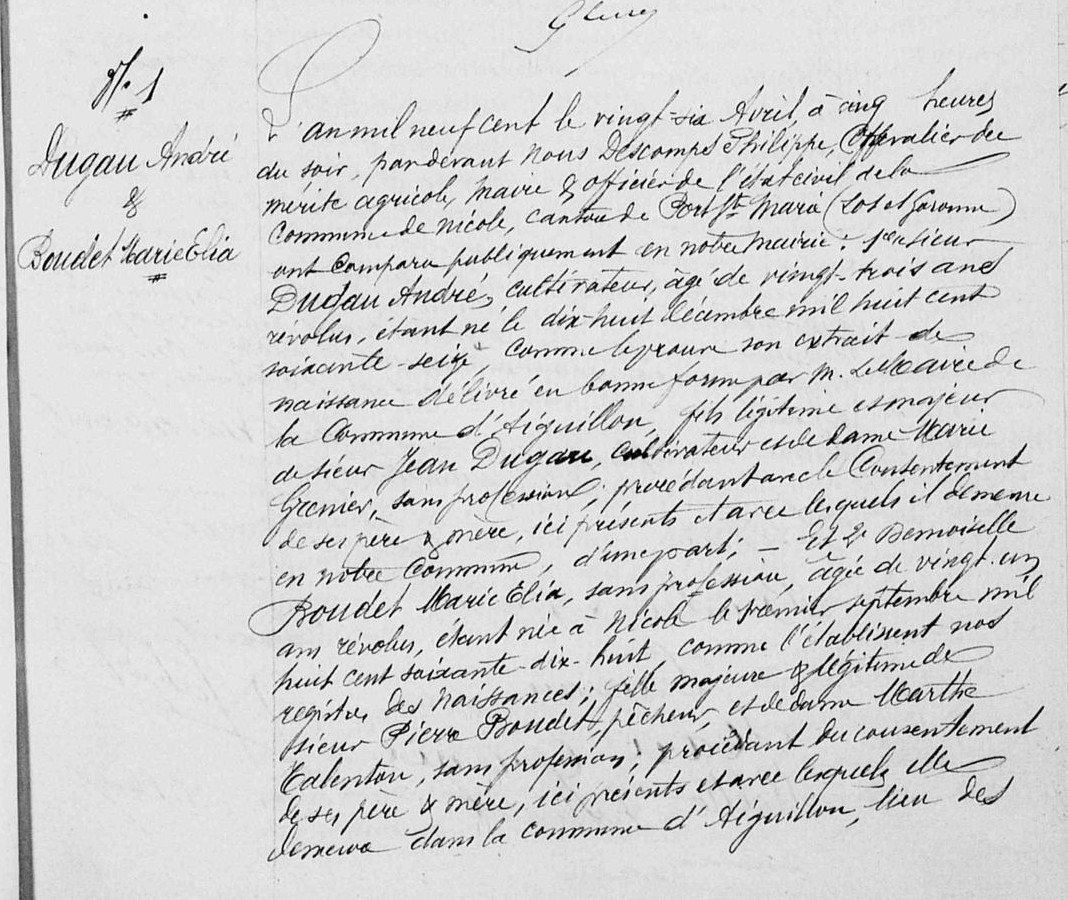 N. 1
Dugau André
&
Boudet Marie Elia
L'an mil neuf cent le vingt-six Avril, à cinq heures
du soir, par devant Nous Descomps Philippe, Chevalier du
mérite agricole, Maire & officier de l'état civil de la
Commune de Nicole, canton de Port Ste Marie (Lot et Garonne)
ont comparu publiquement en notre Mairie: 1ent sieur
Dugau André, cultivateur, âgé de vingt-trois ans
révolus, étant né le dix-huit décembre mil huit cent
soixante-seize, comme le prouve son extrait de
naissance délivré en bonne forme par M. le Maire de
la Commune d'Aiguillon, fils légitime et majeur
de sieur Jean Dugau, cultivateur et de dame Marie
Grenier, sans profession; procédant avec le Consentement
de ses père & mère, ici présents et avec lesquels il demeure
en notre Commune, d'une part; — Et 2e Demoiselle
Boudet Marie Elia, sans profession, âgée de vingt-un
ans révolus, étant née à Nicole le premier septembre mil
huit cent soixante-dix-huit, comme l'établissent nos
registres des naissances; fille majeure & légitime de
sieur Pierre Boudet, pêcheur, et de dame Marthe
Talenton, sans profession; procédant du consentement
de ses père & mère, ici présents et avec lesquels elle
demeure dans la commune d'Aiguillon, lieu des